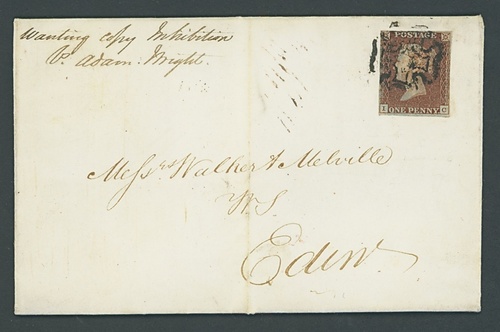 Wanting copy Inhibition
V. Adam Wright.
POSTAGE
ONE PENNY
I G
Messrs Walker & Melville
W.S.
Edinr.